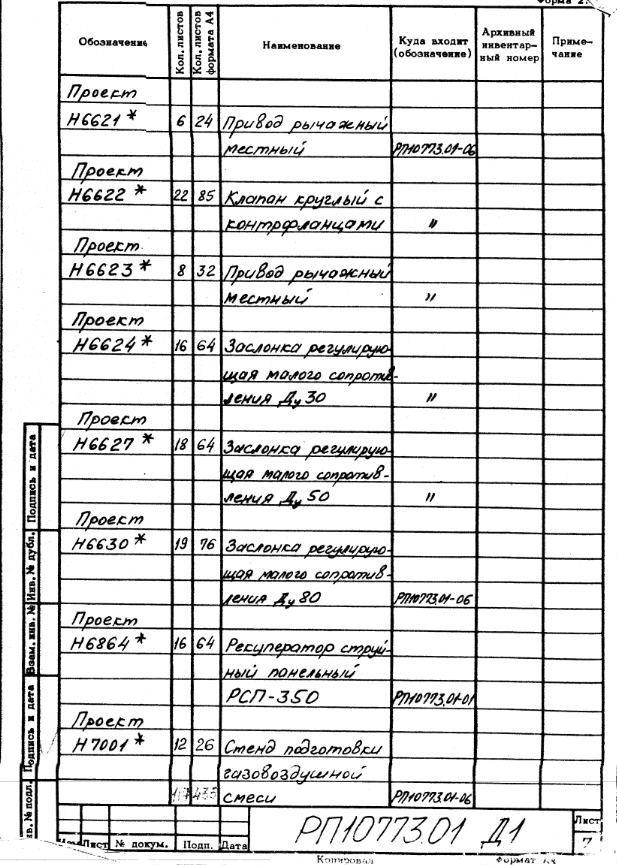 Форма 2.
Обозначение Кол. листов Кол. листов формата А4 Наименование Куда входит (обозначение) Архивный инвентарный номер Примечание
Проект
Н6621* 6 24 Привод рычажный
местный РП10773.01-06
Проект
Н6622* 22 85 Клапан круглый с
контрфланцами "
Проект
Н6623* 8 32 Привод рычажный
местный "
Проект
Н6624* 16 64 Заслонка регулирую-
щая малого сопротив-
ления Ду 30 "
Проект
Н6627* 18 64 Заслонка регулирую-
щая малого сопротив-
ления Ду 50 "
Проект
Н6630* 19 76 Заслонка регулирую-
щая малого сопротив-
ления Ду 80 РП10773.01-06
Проект
Н6864* 16 64 Рекуператор струй-
ный панельный
РСП-350 РП10773.01-01
Проект
Н7001* 12 26 Стенд подготовки
газовоздушной
117 435 смеси РП10773.01-06
Подпись и дата
Инв. № дубл.
Взам. инв. №
Подпись и дата
в. № подл.
Лист № докум. Подп. Дата
РП10773.01 Д1
Лист
7
Копировал Формат А3